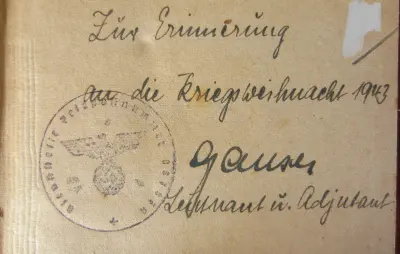 Zur Erinnerung
an die Kriegsweihnacht 1943
Leutnant u. Adjutant
Dienststelle Feldpostnummer